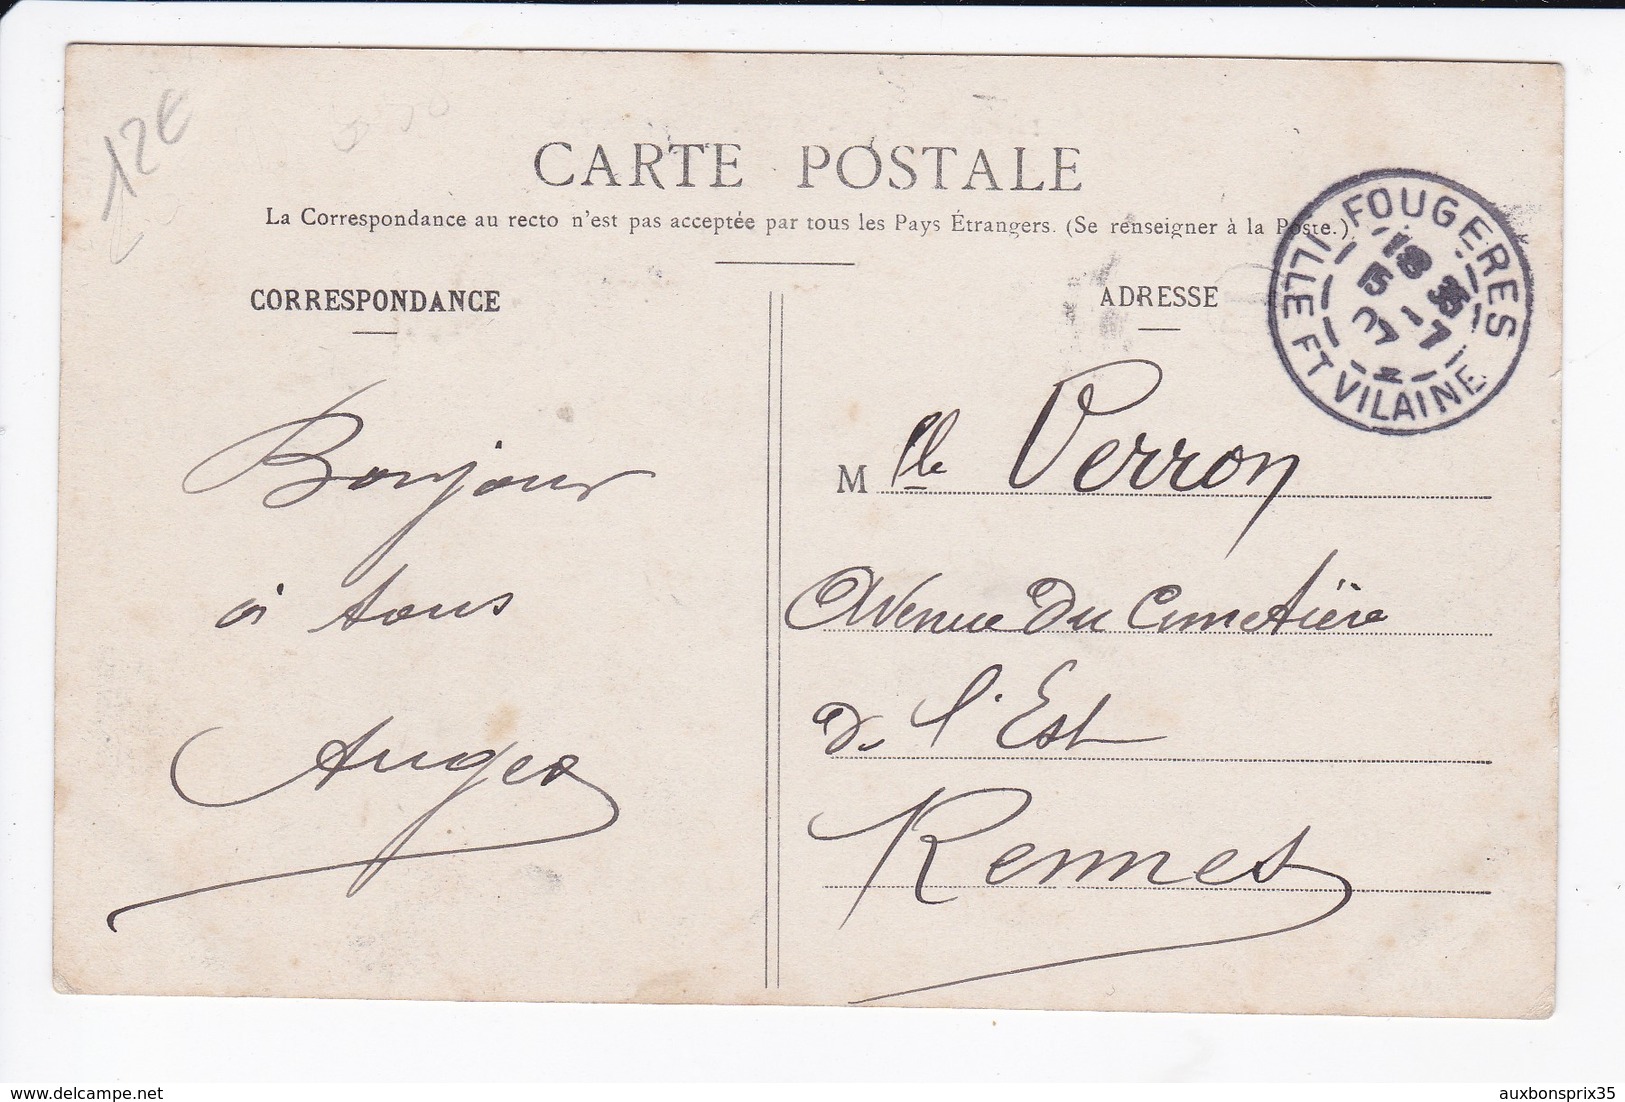 12€
CARTE POSTALE
La Correspondance au recto n'est pas acceptée par tous les Pays Étrangers. (Se renseigner à la Poste.)
CORRESPONDANCE
ADRESSE
FOUGERES
ILLE ET VILAINE
Bonjour
à tous
M lle Verron
Avenue Du Cimetière
De l'Est
Rennes
delcampe.net
auxbonsprix35